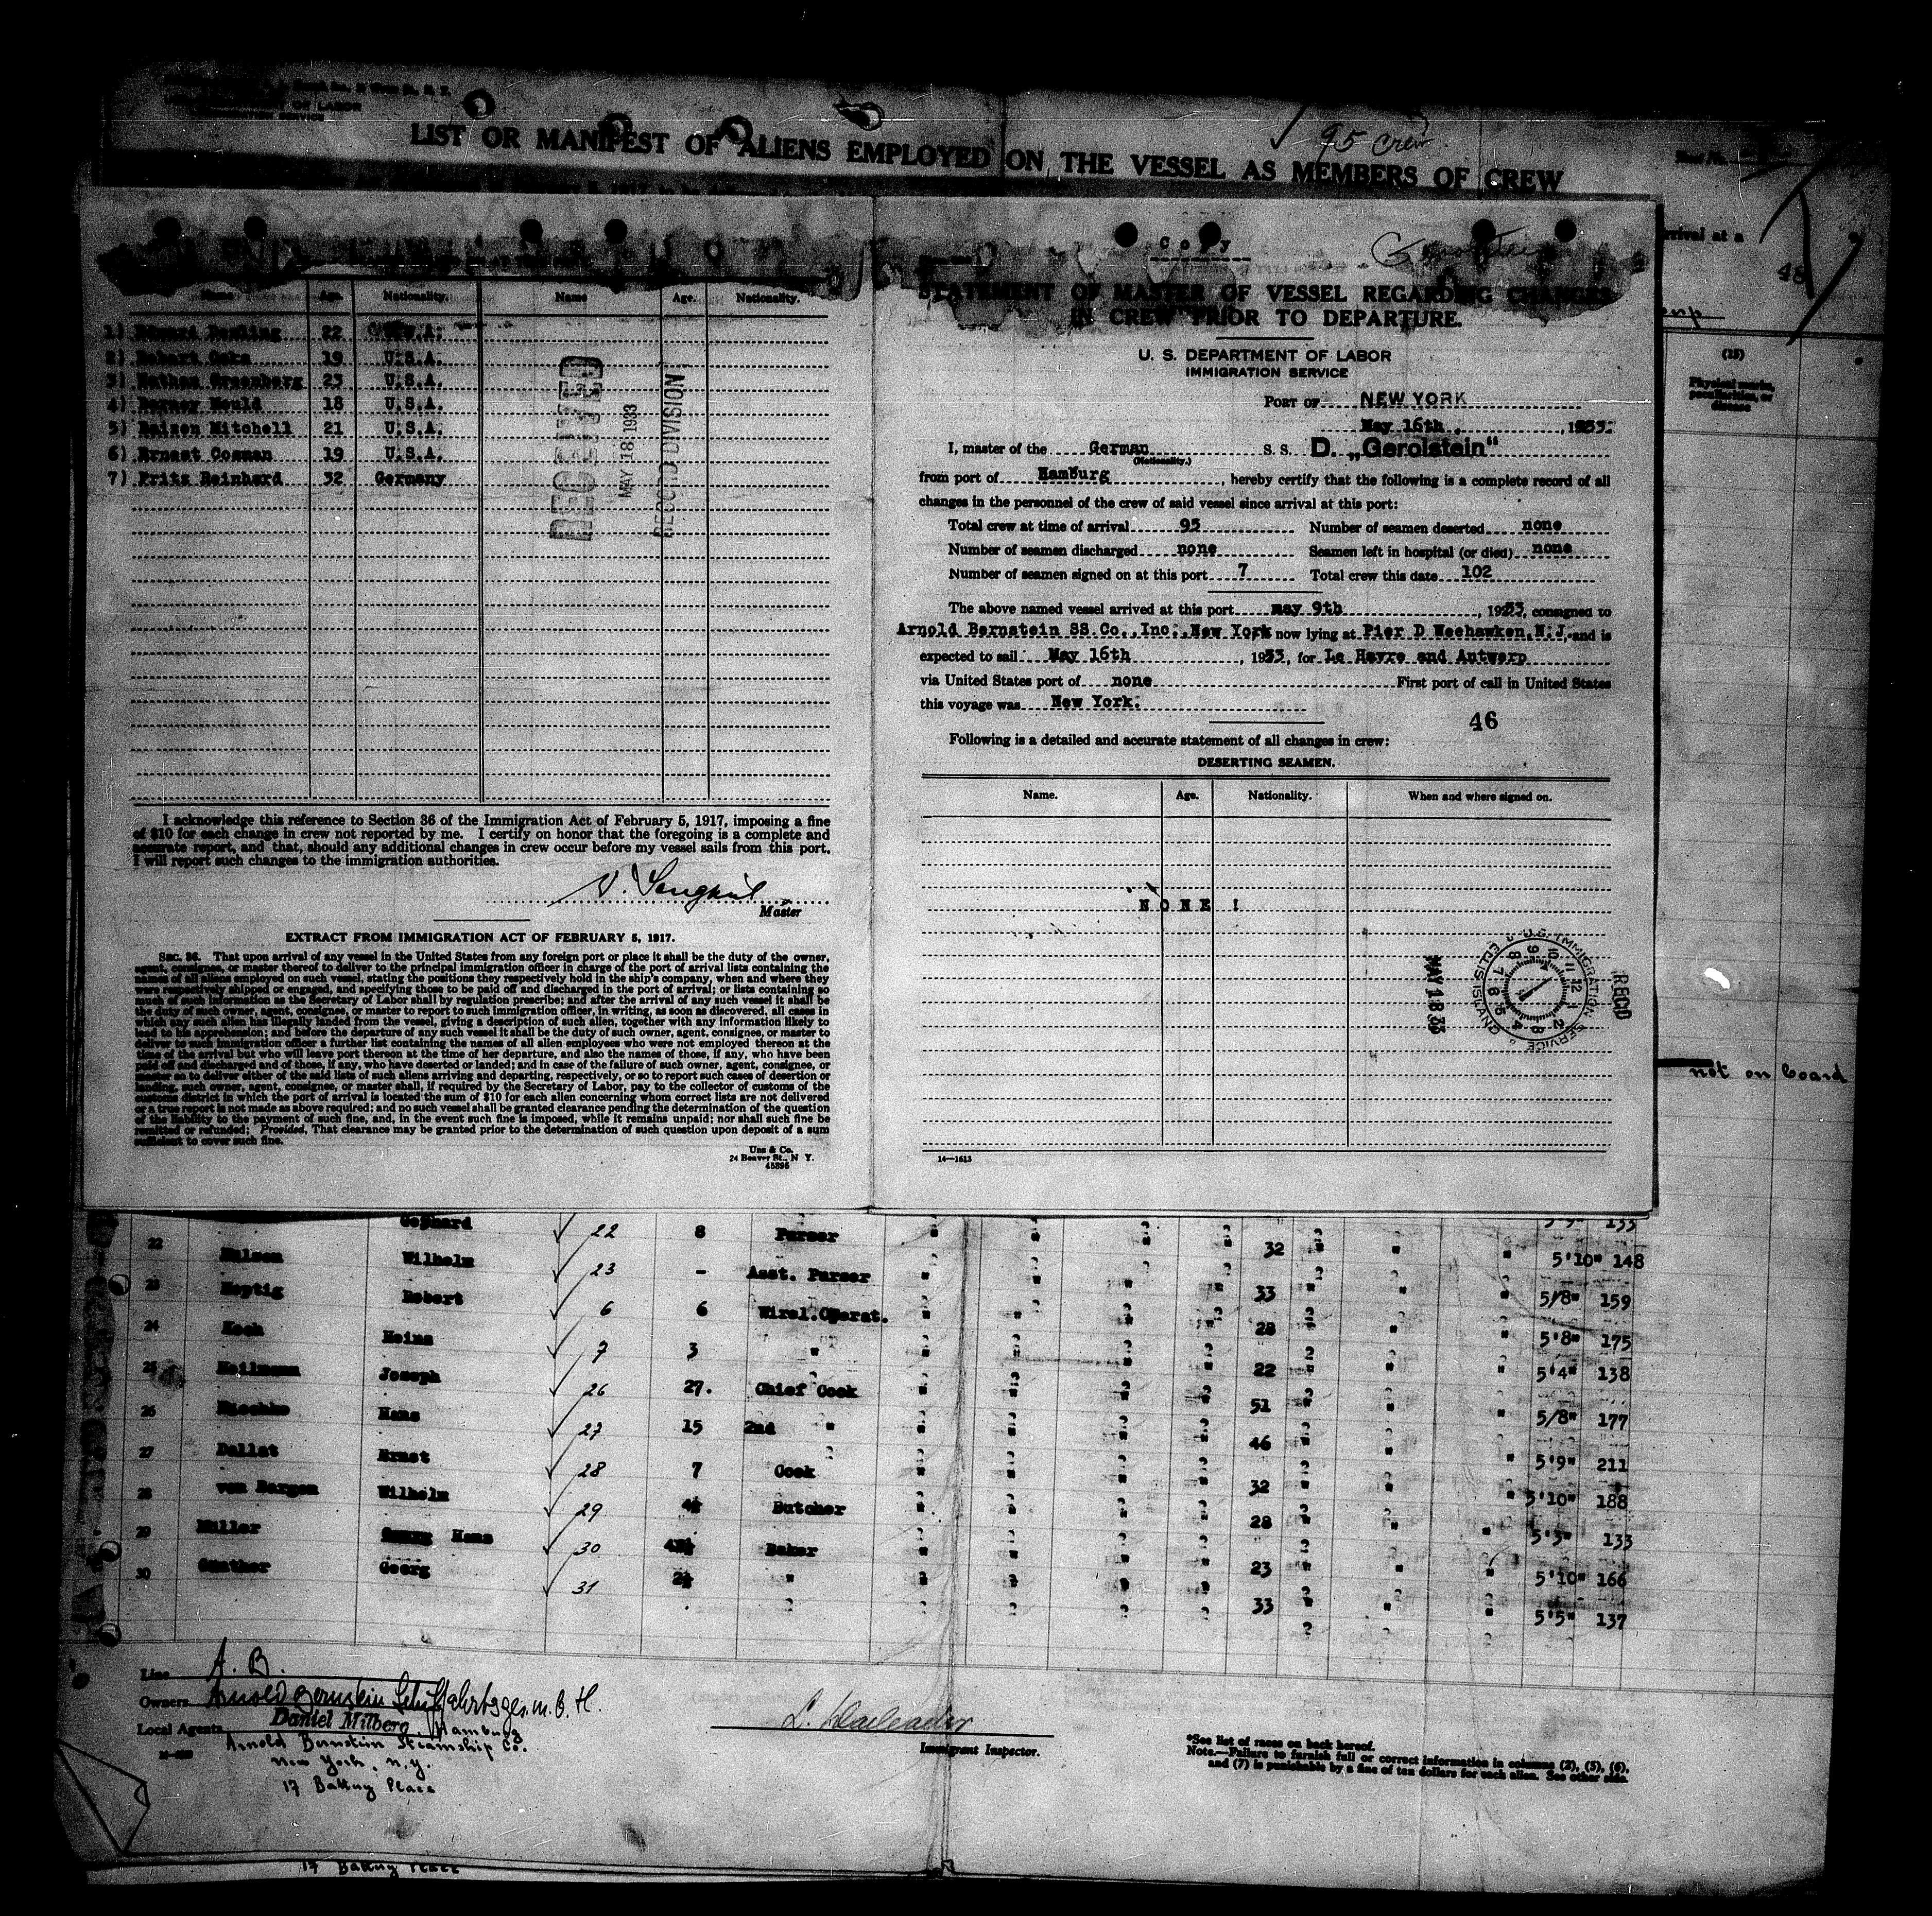 LIST OR MANIFEST OF ALIENS EMPLOYED ON THE VESSEL AS MEMBERS OF CREW
95 Crew
rrival at a
48
(15)
Physical marks, peculiarities, or disease
Name Age. Nationality. Name Age. Nationality.
1) Edward Dowling 22 U.S.A.
2) Robert 19 U.S.A.
3) Nathan Greenberg 23 U.S.A.
4) 18 U.S.A.
5) Mitchell 21 U.S.A.
6) Ernest Cosman 19 U.S.A.
7) Fritz Reinhard 32 Germany
RECEIVED
MAY 18 1933
RECORD DIVISION
I acknowledge this reference to Section 36 of the Immigration Act of February 5, 1917, imposing a fine
of $10 for each change in crew not reported by me. I certify on honor that the foregoing is a complete and
accurate report, and that, should any additional changes in crew occur before my vessel sails from this port,
I will report such changes to the immigration authorities.
Master
EXTRACT FROM IMMIGRATION ACT OF FEBRUARY 5, 1917.
SEC. 36. That upon arrival of any vessel in the United States from any foreign port or place it shall be the duty of the owner,
agent, consignee, or master thereof to deliver to the principal immigration officer in charge of the port of arrival lists containing the
names of all aliens employed on such vessel, stating the positions they respectively hold in the ship's company, when and where they
were respectively shipped or engaged, and specifying those to be paid off and discharged in the port of arrival; or lists containing so
much of such information as the Secretary of Labor shall by regulation prescribe; and after the arrival of any such vessel it shall be
the duty of such owner, agent, consignee, or master to report to such immigration officer, in writing, as soon as discovered, all cases in
which any such alien has illegally landed from the vessel, giving a description of such alien, together with any information likely to
lead to his apprehension; and before the departure of any such vessel it shall be the duty of such owner, agent, consignee, or master to
deliver to such immigration officer a further list containing the names of all alien employees who were not employed thereon at the
time of the arrival but who will leave port thereon at the time of her departure, and also the names of those, if any, who have been
paid off and discharged and of those, if any, who have deserted or landed; and in case of the failure of such owner, agent, consignee, or
master so to deliver either of the said lists of such aliens arriving and departing, respectively, or so to report such cases of desertion or
landing, such owner, agent, consignee, or master shall, if required by the Secretary of Labor, pay to the collector of customs of the
customs district in which the port of arrival is located the sum of $10 for each alien concerning whom correct lists are not delivered
or a true report is not made as above required; and no such vessel shall be granted clearance pending the determination of the question
of the liability to the payment of such fine, and, in the event such fine is imposed, while it remains unpaid; nor shall such fine be
remitted or refunded; Provided, That clearance may be granted prior to the determination of such question upon deposit of a sum
sufficient to cover such fine.
Unz & Co.
24 Beaver St., N Y.
45895
Copy
Gerolstein
STATEMENT OF MASTER OF VESSEL REGARDING CHANGES
IN CREW PRIOR TO DEPARTURE.
U. S. DEPARTMENT OF LABOR
IMMIGRATION SERVICE
PORT OF NEW YORK
May 16th, 1933.
I, master of the German S. S. D. „Gerolstein"
(Nationality.)
from port of Hamburg, hereby certify that the following is a complete record of all
changes in the personnel of the crew of said vessel since arrival at this port:
Total crew at time of arrival 95 Number of seamen deserted none
Number of seamen discharged none Seamen left in hospital (or died) none
Number of seamen signed on at this port 7 Total crew this date 102
The above named vessel arrived at this port may 9th, 1933, consigned to
Arnold Bernstein SS.Co.,Inc.,New York now lying at Pier D Weehawken,N.J. and is
expected to sail May 16th, 1933, for Le Havre and Antwerp
via United States port of none First port of call in United States
this voyage was New York.
46
Following is a detailed and accurate statement of all changes in crew:
DESERTING SEAMEN.
Name. Age. Nationality. When and where signed on.
NONE !
MAY 18 33
U.S. IMMIGRATION SERVICE ELLIS ISLAND
REC'D
14—1613
not on board
Gephard 22 8 Purser 5'9" 133
22 Nilsen Wilhelm 23 - Asst. Purser 32 5'10" 148
23 Heytig Robert 6 6 Wirel.Operat. 33 5/8" 159
24 Koch Heinz 7 3 " 28 5'8" 175
25 Heilmann Joseph 26 27. Chief Cook 22 5'4" 138
26 Hans 27 15 2nd " 51 5/8" 177
27 Dallat Ernst 28 7 Cook 46 5'9" 211
28 von Bargen Wilhelm 29 4½ Butcher 32 5'10" 188
29 Müller Hans 30 Baker 28 5'3" 133
30 Günther Georg 31 2½ " 23 5'10" 166
33 5'5" 137
Line A. B.
Owners Arnold Bernstein Schiffahrtsges.m.b.H.
Local Agents Daniel Milberg, Hamburg
Arnold Bernstein Steamship Co.
New York, N.Y.
17 Battery Place
Immigrant Inspector.
*See list of races on back hereof.
Note.—Failure to furnish full or correct information in columns (2), (5), (6),
and (7) is punishable by a fine of ten dollars for each alien. See other side.
17 Battery Place